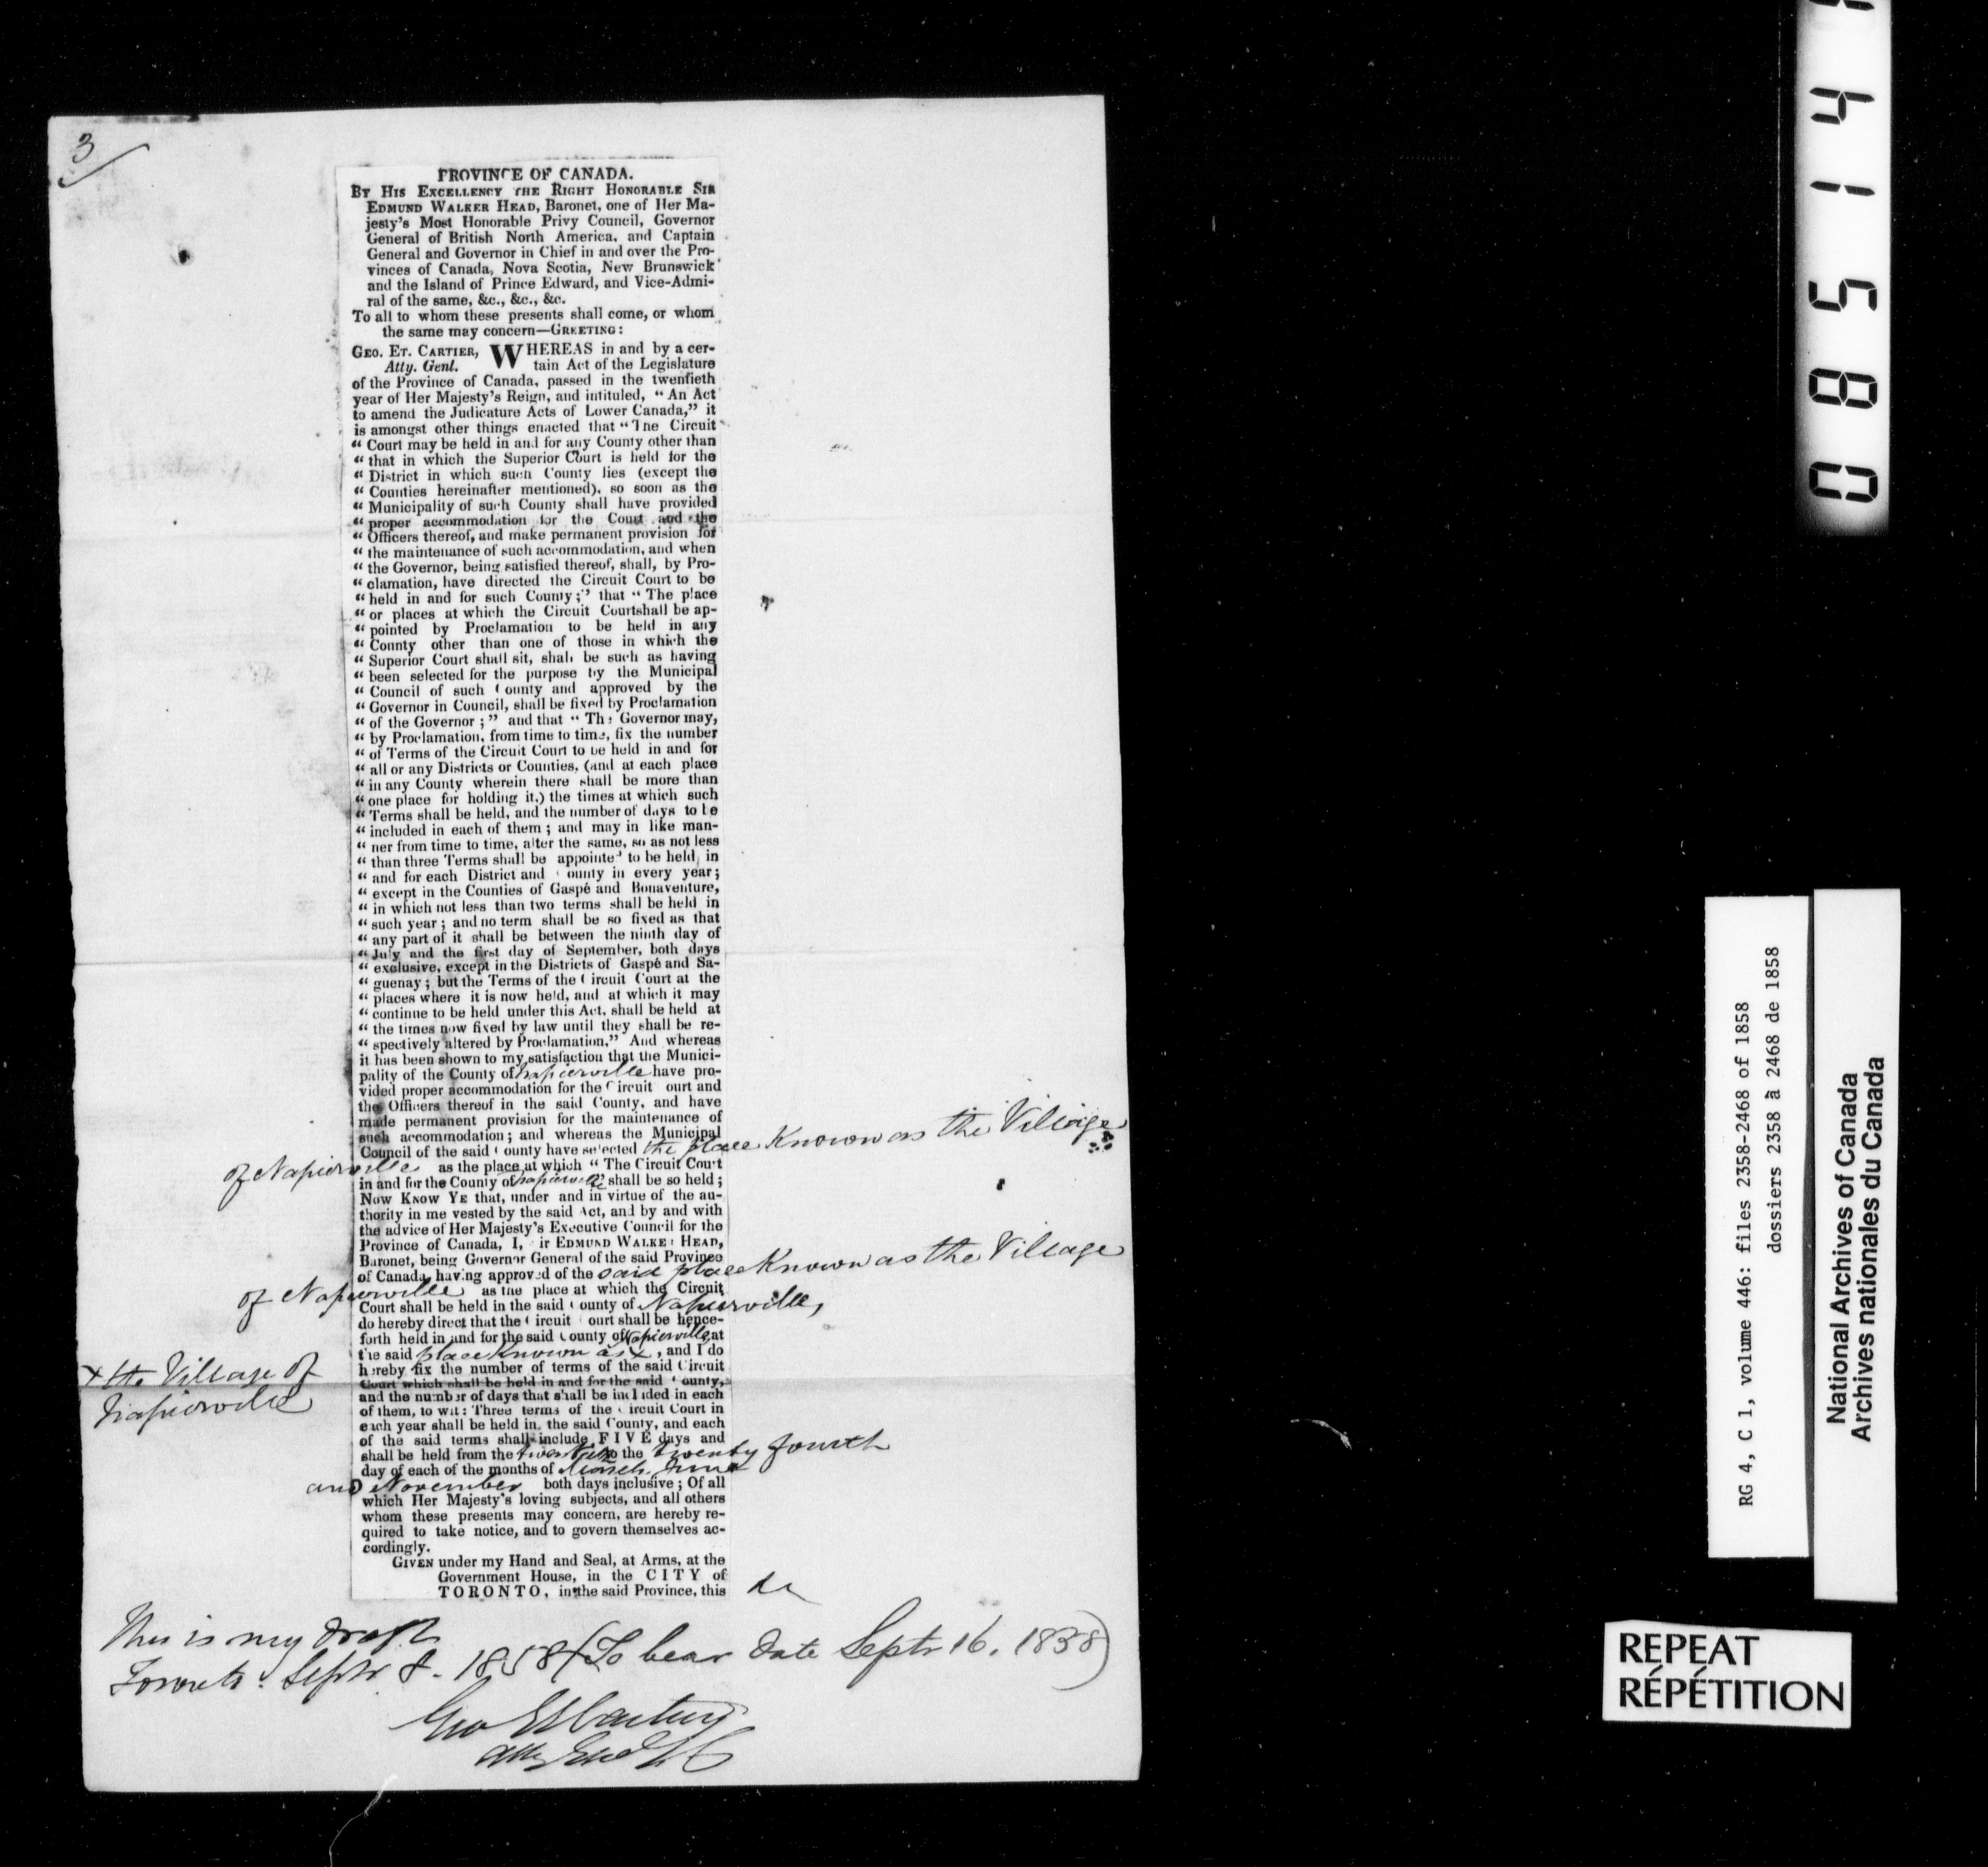 3
PROVINCE OF CANADA.
BY HIS EXCELLENCY THE RIGHT HONORABLE SIR
EDMUND WALKER HEAD, Baronet, one of Her Ma-
jesty's Most Honorable Privy Council, Governor
General of British North America, and Captain
General and Governor in Chief in and over the Pro-
vinces of Canada, Nova Scotia, New Brunswick
and the Island of Prince Edward, and Vice-Admi-
ral of the same, &c., &c., &c.
To all to whom these presents shall come, or whom
the same may concern—GREETING:
GEO. ET. CARTIER, WHEREAS in and by a cer-
Atty. Genl. tain Act of the Legislature
of the Province of Canada, passed in the twentieth
year of Her Majesty's Reign, and intituled, "An Act
to amend the Judicature Acts of Lower Canada," it
is amongst other things enacted that "The Circuit
" Court may be held in and for any County other than
" that in which the Superior Court is held for the
" District in which such County lies (except the
" Counties hereinafter mentioned), so soon as the
" Municipality of such County shall have provided
" proper accommodation for the Court and the
" Officers thereof, and make permanent provision for
" the maintenance of such accommodation, and when
" the Governor, being satisfied thereof, shall, by Pro-
" clamation, have directed the Circuit Court to be
" held in and for such County;" that " The place
" or places at which the Circuit Courtshall be ap-
" pointed by Proclamation to be held in any
" County other than one of those in which the
" Superior Court shall sit, shall be such as having
" been selected for the purpose by the Municipal
" Council of such County and approved by the
" Governor in Council, shall be fixed by Proclamation
" of the Governor ;" and that " The Governor may,
" by Proclamation, from time to time, fix the number
" of Terms of the Circuit Court to be held in and for
" all or any Districts or Counties, (and at each place
" in any County wherein there shall be more than
" one place for holding it,) the times at which such
" Terms shall be held, and the number of days to be
" included in each of them ; and may in like man-
" ner from time to time, alter the same, so as not less
" than three Terms shall be appointed to be held in
" and for each District and County in every year;
" except in the Counties of Gaspé and Bonaventure,
" in which not less than two terms shall be held in
" such year ; and no term shall be so fixed as that
" any part of it shall be between the ninth day of
" July and the first day of September, both days
" exclusive, except in the Districts of Gaspé and Sa-
" guenay ; but the Terms of the Circuit Court at the
" places where it is now held, and at which it may
" continue to be held under this Act, shall be held at
" the times now fixed by law until they shall be re-
" spectively altered by Proclamation," And whereas
it has been shown to my satisfaction that the Munici-
pality of the County of Napierville have pro-
vided proper accommodation for the Circuit Court and
the Officers thereof in the said County, and have
made permanent provision for the maintenance of
such accommodation; and whereas the Municipal
Council of the said County have selected the place Known as the Village
of Napierville as the place at which " The Circuit Court
in and for the County of Napierville shall be so held ;
NOW KNOW YE that, under and in virtue of the au-
thority in me vested by the said Act, and by and with
the advice of Her Majesty's Executive Council for the
Province of Canada, I, Sir EDMUND WALKER HEAD,
Baronet, being Governor General of the said Province
of Canada, having approved of the said place Known as the Village
of Napierville as the place at which the Circuit
Court shall be held in the said County of Napierville,
do hereby direct that the Circuit Court shall be hence-
forth held in and for the said County of Napierville, at
the said place Known as x, and I do
hereby fix the number of terms of the said Circuit
x the Village of
Napierville
Court which shall be held in and for the said County,
and the number of days that shall be included in each
of them, to wit: Three terms of the Circuit Court in
each year shall be held in, the said County, and each
of the said terms shall include FIVE days and
shall be held from the twentieth to the twenty fourth
day of each of the months of March, June
and November both days inclusive ; Of all
which Her Majesty's loving subjects, and all others
whom these presents may concern, are hereby re-
quired to take notice, and to govern themselves ac-
cordingly.
GIVEN under my Hand and Seal, at Arms, at the
Government House, in the CITY of
TORONTO, in the said Province, this &c
This is my draft
Toronto. Septr 8. 1858 (To bear date Septr 16. 1858)
Geo Et Cartier
Atty Genl L C
0 8 5 1 4
RG 4, C 1, volume 446: files 2358-2468 of 1858
dossiers 2358 à 2468 de 1858
National Archives of Canada
Archives nationales du Canada
REPEAT
RÉPÉTITION